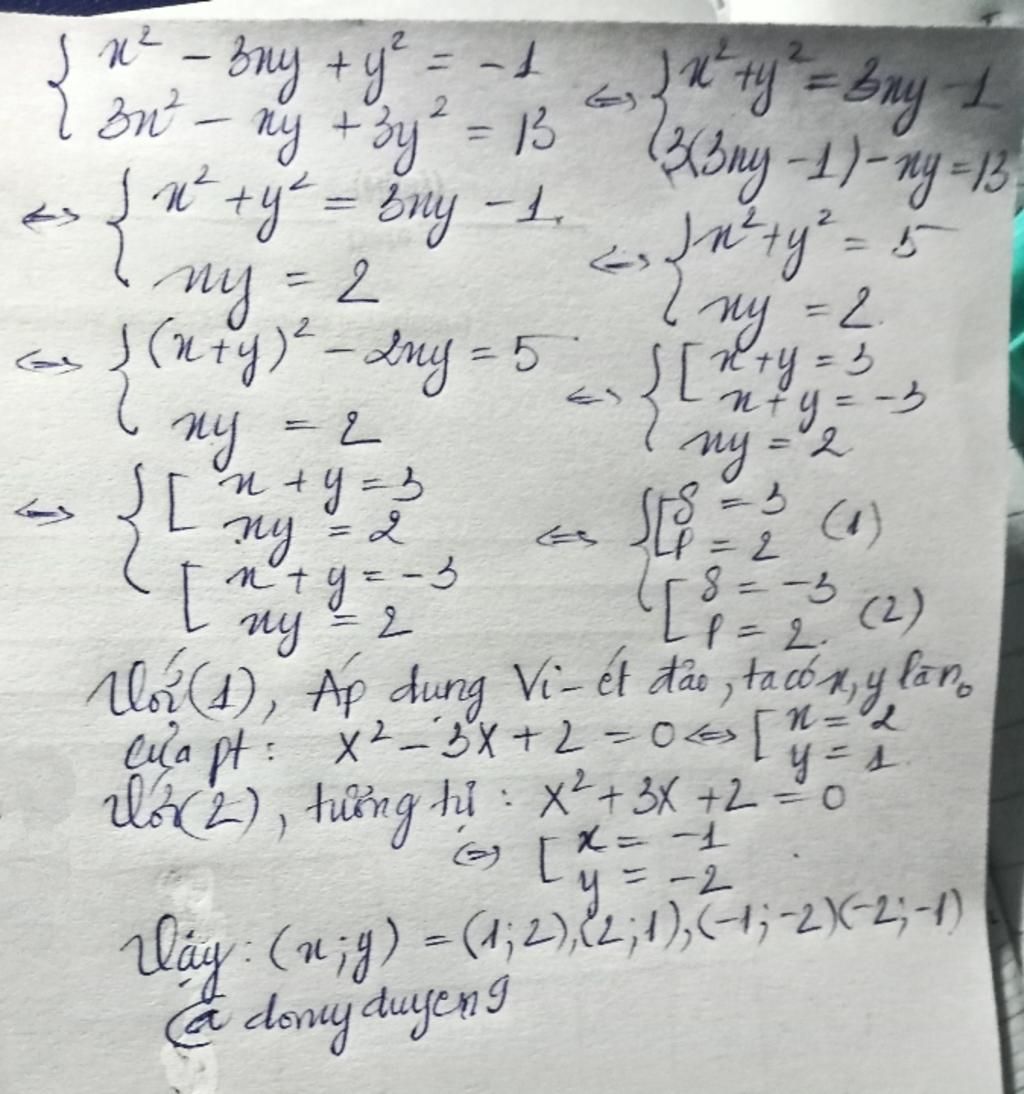 { x² - 3xy + y² = -1
3x² - xy + 3y² = 13
⇔ { x² + y² = 3xy - 1
3(3xy - 1) - xy = 13
⇔ { x² + y² = 3xy - 1.
xy = 2
⇔ { x² + y² = 5
xy = 2.
⇔ { (x+y)² - 2xy = 5
xy = 2
⇔ { [ x + y = 3
x + y = -3
xy = 2
⇔ { [ x + y = 3
xy = 2
[ x + y = -3
xy = 2
⇔ { [ S = 3
P = 2 (1)
[ S = -3
P = 2. (2)
Với (1), Áp dụng Vi-ét đảo, ta có x, y là no
của pt: X² - 3X + 2 = 0 ⇔ [ x = 2
y = 1.
Với (2), tương tự: X² + 3X + 2 = 0
⇔ [ x = -1
y = -2
Vậy: (x;y) = (1;2),(2;1),(-1;-2)(-2;-1)